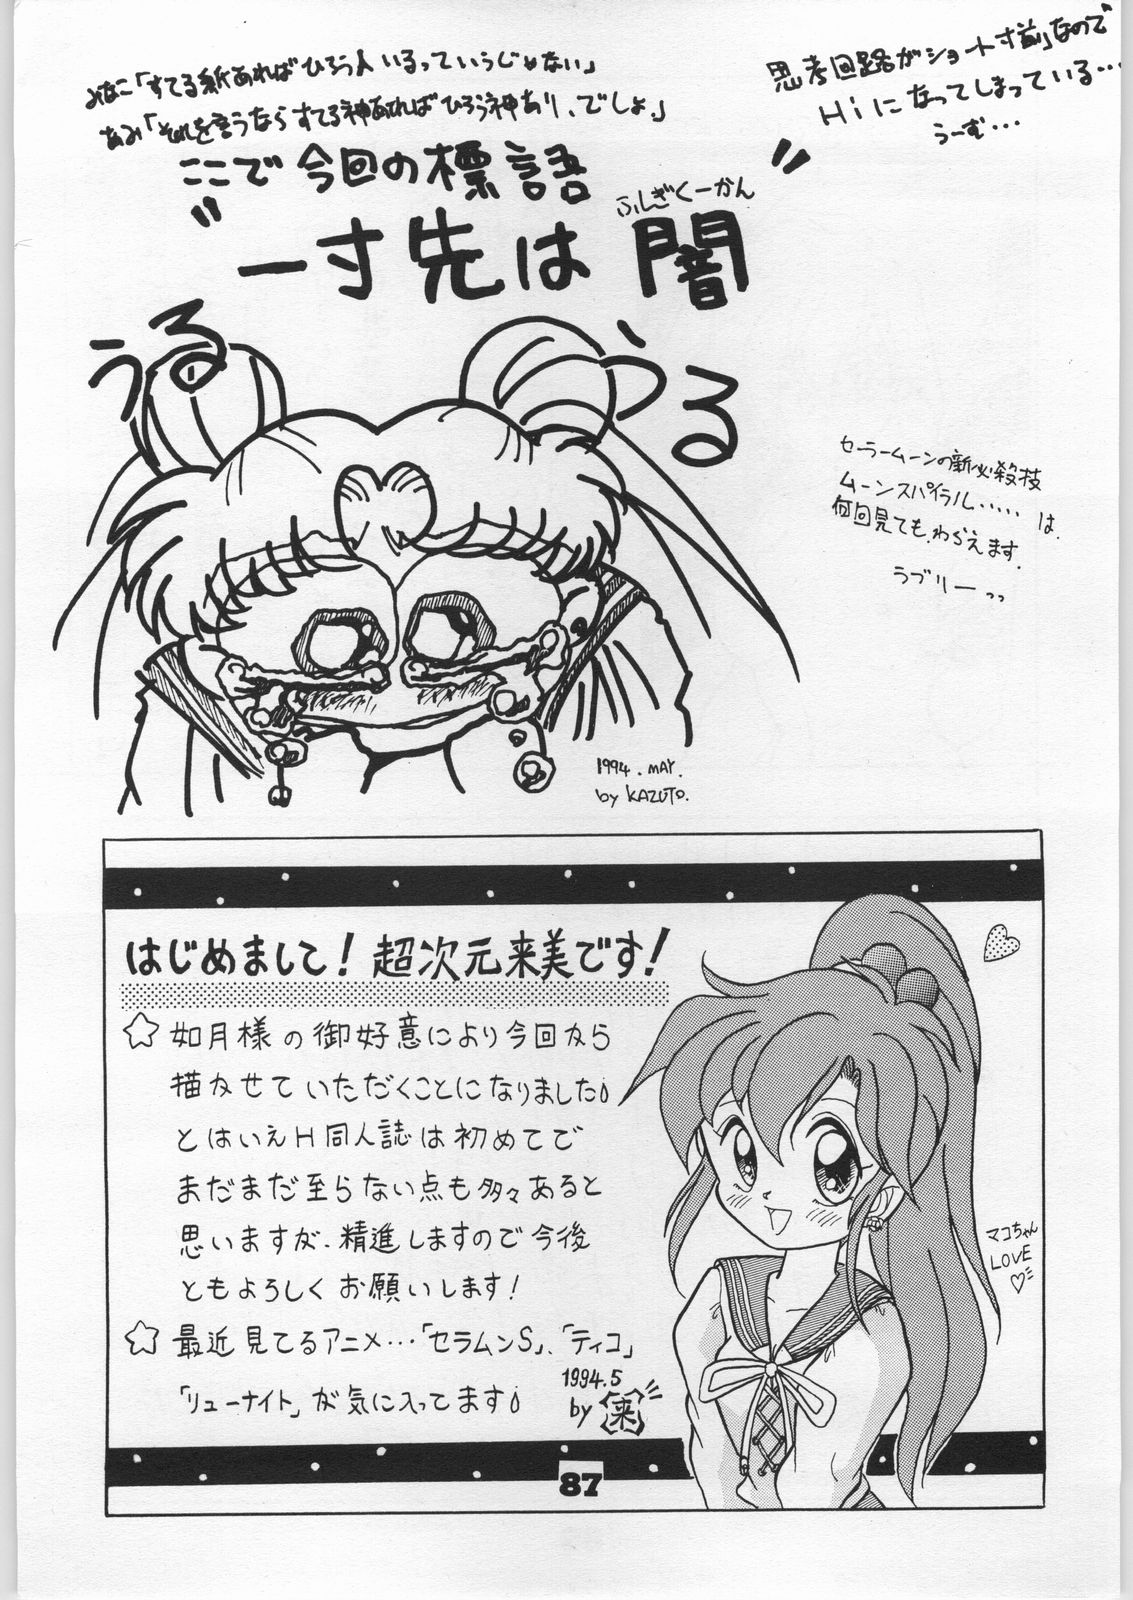 みなこ「すてる紙あればひろう人いるっていうじゃない」
あみ「それを言うならすてる神あればひろう神あり、でしょ。」
思考回路がショート寸前なので
Hiになってしまっている…
うーむ…
ここで今回の標語
ふしぎくーかん
"一寸先は闇"
うる
うる
セーラームーンの新必殺技
ムーンスパイラル……は
何回見てもわらえます.
ラブリーっっ
1994.MAY.
by KAZUTO.
はじめまして!超次元来美です!
☆如月様の御好意により今回から
描かせていただくことになりました
とはいえH同人誌は初めてで
まだまだ至らない点も多々あると
思いますが、精進しますので今後
ともよろしくお願いします!
☆最近見てるアニメ…「セラムンS」、「ティコ」
「リューナイト」が気に入ってます
1994.5
by 来
マコちゃん
LOVE
♡
87